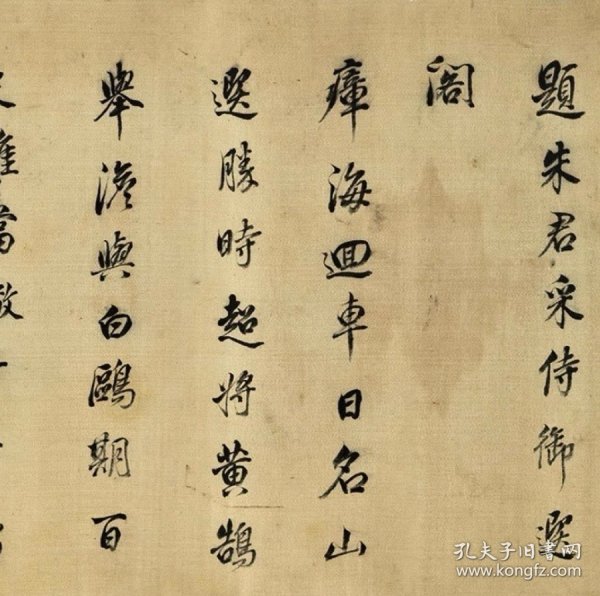 題朱君采侍御選
閣
瘴海迴車日名山
選勝時超將黄鵠
舉澹與白鷗期百
雄當
孔夫子旧書网
www.kongfz.com